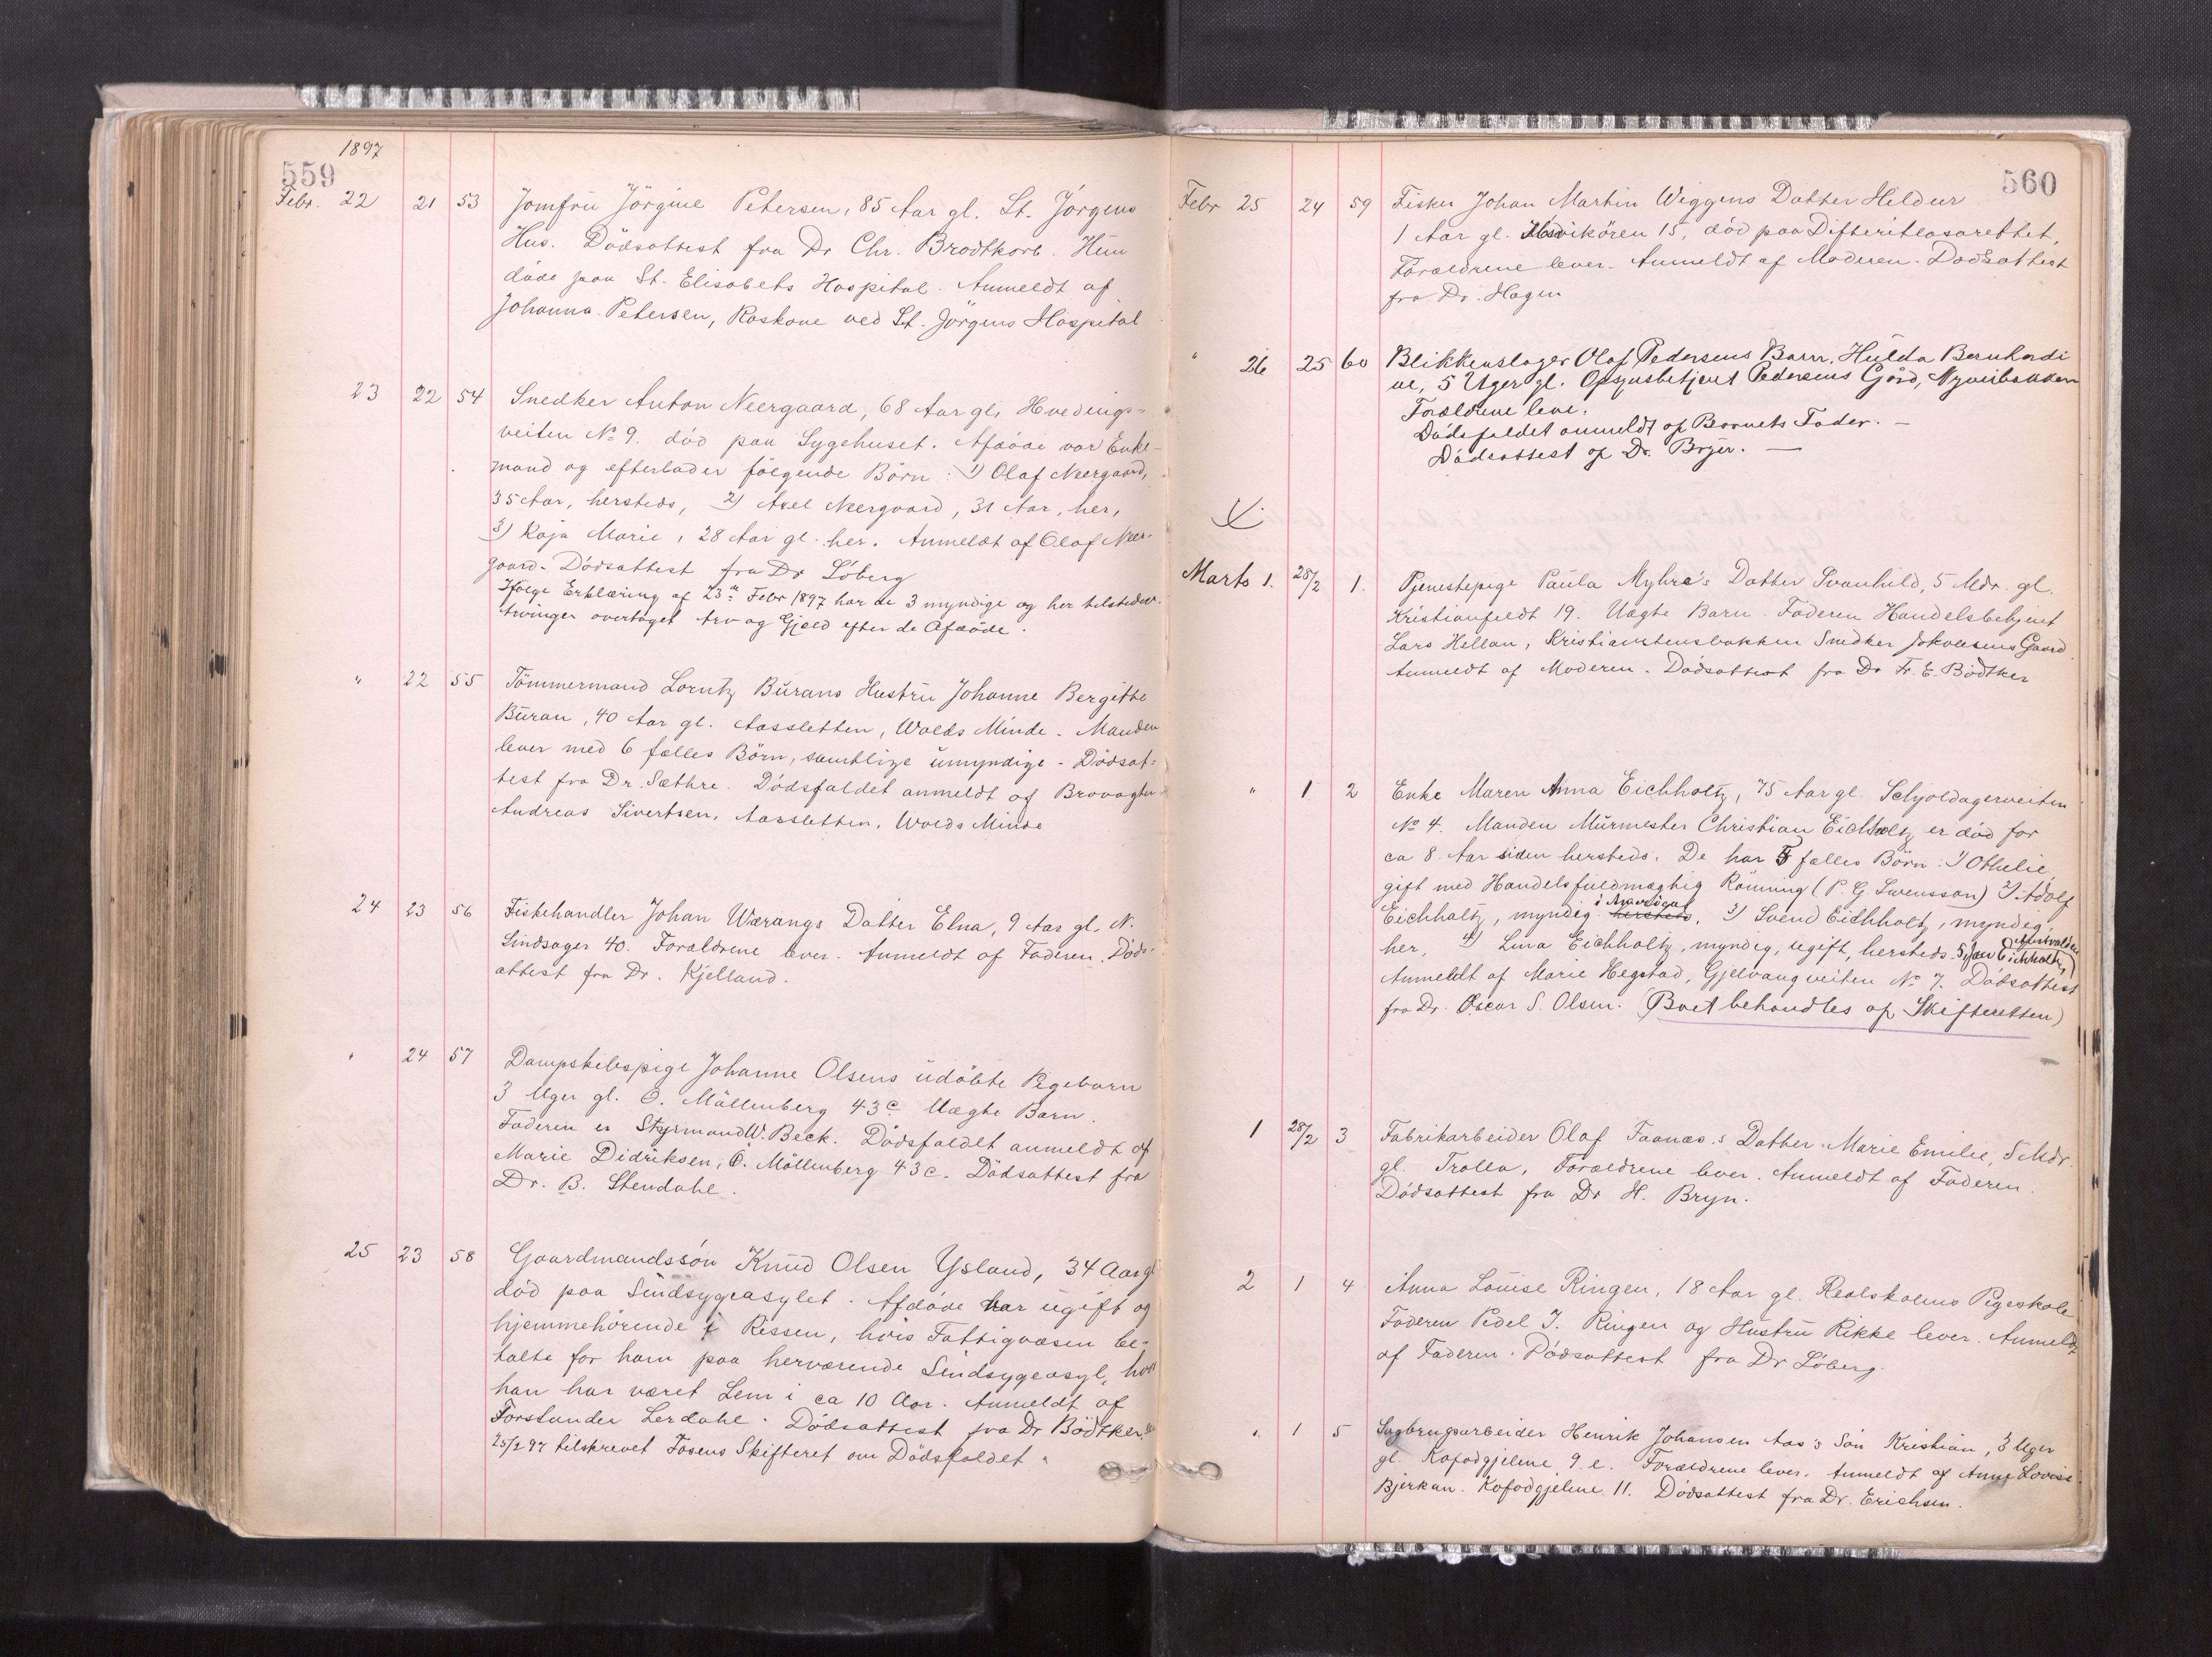 1897
559
Febr. 22 21 53 Jomfru Jörgine Petersen, 85 Aar gl. St. Jörgens
Hus. Dödsattest fra Dr Chr. Brodtkorb. Hun
döde paa St. Elisabets Hospital. Anmeldt af
Johanna Petersen, Raskone ved St. Jörgens Hospital
23 22 54 Snedker Anton Neergaard, 68 Aar gl. Hvedings-
veiten No 9. död paa Sygehuset. Afdöde var Enke-
mand og efterlader fölgende Börn: 1) Olaf Neergaard,
35 Aar, hersteds, 2) Axel Neergaard, 31 Aar, her,
3) Kaja Marie, 28 Aar gl. her. Anmeldt af Olaf Neer-
gaard. Dödsattest fra Dr Löberg
Ifölge Erklæring af 23de Febr 1897 har de 3 myndige og her tilstedev.
Arvinger overtaget Arv og Gjæld efter de Afdöde.
" 22 55 Tömmermand Lorntz Burans Hustru Johanne Bergitte
Buran, 40 Aar gl. Aassletten, Wolds Minde. Manden
lever med 6 fælles Börn, samtlige umyndige - Dödsat-
test fra Dr. Sæthre. Dödsfaldet anmeldt af Brovogter
Andreas Sivertsen, Aassletten, Wolds Minde
24 23 56 Fiskehandler Johan Wærangs Datter Elna, 9 Aar gl. N.
Sindsager 40. Forældrene lever. Anmeldt af Faderen. Döds-
attest fra Dr. Kjelland.
" 24 57 Dampskibspige Johanne Olsens udöbte Pigebarn
3 Uger gl. Ö. Möllenberg 43c Uægte Barn.
Faderen er Styrmand W. Beck. Dödsfaldet anmeldt af
Marie Didriksen, Ö. Möllenberg 43c. Dödsattest fra
Dr. B. Stendahl.
25 23 58 Gaardmandssön Knud Olsen Ysland, 34 Aar gl
död paa Sindsygeasylet. Afdöde var ugift og
hjemmehörende i Rissen, hvis Fattigvæsen be-
talte for ham paa herværende Sindsygeasyl, hvor
han har været Lem i ca 10 Aar. Anmeldt af
Forstander Lerdahl. Dödsattest fra Dr Bödtker.
25/2 97 tilskrevet Fosens Skifteret om Dödsfaldet.
560
Febr 25 24 59 Fisker Johan Martin Wiggens Datter Hildur
1 Aar gl. Ilsvikören 15, död paa Difteritlasarettet,
Forældrene lever. Anmeldt af Moderen. Dödsattest
fra Dr. Hagen
" 26 25 60 Blikkenslager Olaf Pedersens Barn, Hulda Bernhardi
ne, 5 Uger gl. Opsynsbetjent Pedersens Gård, Nyveibakken
Forældrene leve.
Dödsfaldet anmeldt af Barnets Fader. —
Dödsattest af Dr. Brÿn. —
Marts 1. 28/2 1. Tjenestepige Paula Myhre's Datter Svanhild, 5 Mdr. gl.
Kristianfeldt 19. Uægte Barn. Faderen Handelsbetjent
Lars Hellan, Kristianstensbakken Snedker Jakobsens Gaard
Anmeldt af Moderen. Dödsattest fra Dr Fr. E. Bödtker
" 1 2 Enke Maren Anna Eichholtz, 75 Aar gl. Schjoldagerveiten
No 4. Manden Murmester Christian Eichholtz er död for
ca 8 Aar siden hersteds. De har 5 fælles Börn: 1) Othelie,
gift med Handelsfuldmægtig Rönning (P. G. Svensson) 2) Adolf
Eichholtz, myndig hersteds. 3) Svend Eichholtz, myndig,
her, 4) Lina Eichholtz, myndig, ugift, hersteds. 5) Jan Eichholtz,
Anmeldt af Marie Hegstad, Gjelvangveiten No 7. Dödsattest
fra Dr. Oscar S. Olsen. (Boet behandles af Skifteretten)
1 28/2 3 Fabrikarbeider Olaf Faanæs's Datter Marie Emilie, 5 Mdr.
gl. Trolla, Forældrene lever. Anmeldt af Faderen.
Dödsattest fra Dr H. Bryn.
2 1 4 Anna Louise Ringen, 18 Aar gl. Realskolens Pigeskole
Faderen Pedel J. Ringen og Hustru Rikke lever. Anmeldt
af Faderen. Dödsattest fra Dr Löberg.
" 1 5 Sagbrugsarbeider Henrik Johansen Aas's Sön Kristian, 3 Uger
gl. Kofodgjelene 9.e. Forældrene lever. Anmeldt af Anne Lovise
Bjerkan. Kofodgjelene 11. Dödsattest fra Dr. Erichsen.